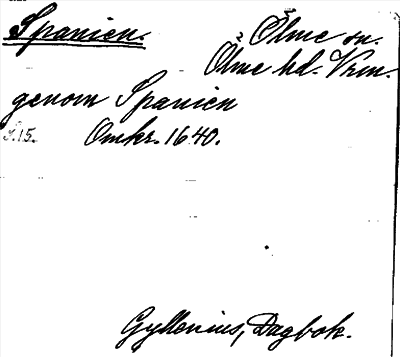 Spanien.
Ölme sn.
Ölme hd. Vrm.
genom Spanien
S.15. Omkr. 1640.
Gyllenius, Dagbok.